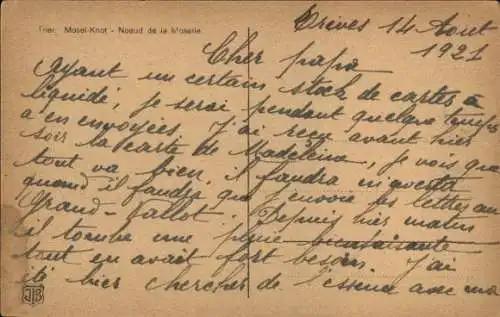 Trier, Mosel-Knot - Noeud de la Moselle
Trèves 14 Aout
1921
Cher papa
Ayant un certain stock de cartes à
liquidé, je serai pendant quelque temps
a en envoyées. J'ai reçu avant hier
soir la carte de Madeleine, je vois que
tout va bien, il faudra
quand il faudra que j'envoie les lettres au
Grand-Vallot. Depuis hier matin
il tombe une pluie
tout en avait fort besoin. J'ai
été hier chercher de l'essence avec
JB